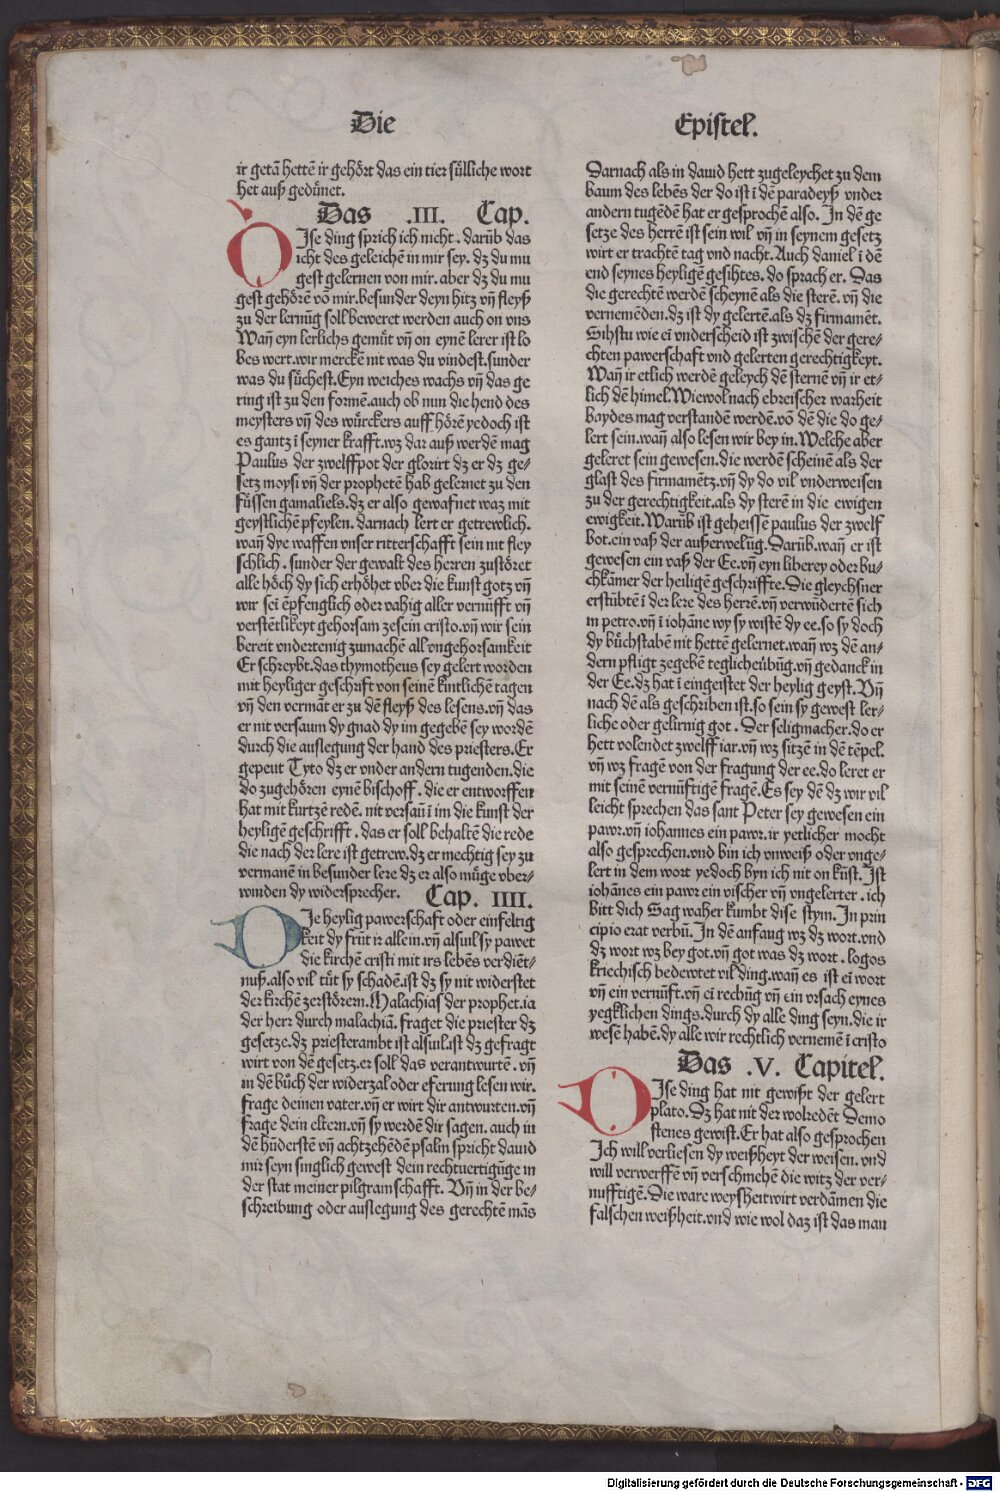 Die Epistel.
ir getā hettē ir gehört das ein tier sülliche wort
het auß gedůnet.
Das .III. Cap.
DIse ding sprich ich nicht. darūb das
icht des geleichē in mir sey. dz du mu
gest gelernen von mir. aber dz du mu
gest gehörē vō mir. besunder deyn hitz vñ fleyß
zu der lernūg soll beweret werden auch on vns
Wañ eyn lerlichs gemüt vñ on eynē lerer ist lo
bes wert. wir merckē nit was du vindest. sunder
was du süchest. Eyn weiches wachs vñ das ge
ring ist zu den formē. auch ob nun die hend des
meysters vñ des würckers auff hörē yedoch ist
es gantz ī seyner krafft. wz dar auß werdē mag
Paulus der zwelffpot der glorirt dz er dz ge/
setz moysi vñ der prophetē hab gelernet zu den
füssen gamaliels. dz er also gewafnet waz mit
geystlichē pfeylen. darnach lert er getrewlich.
wañ dye waffen vnser ritterschafft sein nit fley
schlich. sunder der gewalt des herren zustöret
alle höch dy sich erhöhet vber die kunst gotz vñ
wir sei ēpfenglich oder vahig aller vernūfft vñ
verstētlikeyt gehorsam zesein cristo. vñ wir sein
bereit vndertenig zumachē all vngehorsamkeit
Er schreybt. das thymotheus sey gelert worden
mit heyliger geschrift von seinē kintlichē tagen
vñ den vermāt er zu dē fleyß des lesens. vñ das
er nit versaum dy gnad dy im gegebē sey wordē
durch die auslegung der hand des priesters. Er
gepeut Tyto dz er vnder andern tugenden. die
do zugehören eynē bischoff. die er entworffen
hat mit kurtzē redē. nit versañ ī im die kunst der
heyligē geschrifft. das er soll behaltē die rede
die nach der lere ist getrew. dz er mechtig sey zu
vermanē in besunder lere dz er also müge vber/
winden dy widersprecher. Cap. IIII.
DIe heylig pawerschaft oder einfeltig
keit dy frūt ir allein. vñ alsuil sy pawet
die kirchē cristi mit irs lebēs verdiēt/
nuß. also vil tūt sy schadē. ist dz sy nit widerstet
der kirchē zerstörern. Malachias der prophet. ia
der herr durch malachiā. fraget die priester dz
gesetze. dz priesterambt ist alsuil. ist dz gefragt
wirt von dē gesetz. er soll das verantwurtē. vñ
in dē bůch der widerzal oder eferung lesen wir.
frage deinen vater. vñ er wirt dir antwurten. vñ
frage dein eltern. vñ sy werdē dir sagen. auch in
dē hūderstē vñ achtzehēdē psalm spricht dauid
mir seyn singlich gewest dein rechtuertigūge in
der stat meiner pilgramschafft. Vñ in der be/
schreibung oder auslegung des gerechtē mās
Darnach als in dauid hett zugeleychet zu dem
baum des lebēs der do ist ī dē paradeyß vnder
andern tugēdē hat er gesprochē also. In dē ge
setze des herrē ist sein wil vñ in seynem gesetz
wirt er trachtē tag vnd nacht. Auch daniel ī dē
end seynes heyligē gesihtes. do sprach er. Das
die gerechtē werdē scheynē als die sterē. vñ die
vernemēden. dz ist dy gelertē. als dz firmamēt.
Sihstu wie ei vnderscheid ist zwischē der gere/
chten pawerschaft vnd gelerten gerechtigkeyt.
Wañ ir etlich werdē geleych dē sternē vñ ir et/
lich dē himel. Wiewol nach ebreischer warheit
baydes mag verstandē werdē. vō dē die do ge/
lert sein. wañ also lesen wir bey in. Welche aber
geleret sein gewesen. die werdē scheinē als der
glast des firmamētz. vñ dy do vil vnderweisen
zu der gerechtigkeit. als dy sterē in die ewigen
ewigkeit. Warūb ist geheissē paulus der zwelf
bot. ein vaß der außerwelūg. Darūb. wañ er ist
gewesen ein vaß der Ee. vñ eyn liberey oder bu/
chkāmer der heiligē geschriffte. Die gleychsner
erstūbtē ī der lere des herrē. vñ verwūdertē sich
in petro. vñ ī iohāne wy sy wistē dy ee. so sy doch
dy bůchstabē nit hettē gelernet. wañ wz dē an/
dern pfligt zegebē teglicheübūg. vñ gedanck in
der Ee. dz hat ī eingeistet der heylig geyst. Vñ
nach dē als geschriben ist. so sein sy gewest ler/
liche oder gelirnig got. Der seligmacher. do er
hett volendet zwelff iar. vñ wz sitzē in dē tēpel.
vñ wz fragē von der fragung der ee. do leret er
mit seinē vernūftigē fragē. Es sey dē dz wir vil
leicht sprechen das sant Peter sey gewesen ein
pawr. vñ iohannes ein pawr. ir yetlicher mocht
also gesprechen. vnd bin ich vnweiß oder vnge/
lert in dem wort yedoch byn ich nit on kūst. Ist
iohānes ein pawr ein vischer vñ vngelerter. ich
bitt dich Sag waher kumbt dise stym. In prin
cipio erat verbū. In dē anfang wz dz wort. vnd
dz wort wz bey got. vñ got was dz wort. logos
kriechisch bedewtet vil ding. wañ es ist ei wort
vñ ein vernūft. vñ ei rechūg vñ ein vrsach eynes
yegklichen dings. durch dy alle ding seyn. die ir
wesē habē. dy alle wir rechtlich vernemē ī cristo
Das .V. Capitel.
DIse ding hat nit gewißt der gelert
plato. Dz hat nit der wolredēt Demo
stenes gewist. Er hat also gesprochen
Ich will verliesen dy weißheyt der weisen. vnd
will verwerffē vñ verschmehē die witz der ver/
nufftigē. Die ware weysheit wirt verdāmen die
falschen weißheit. vnd wie wol daz ist das man
Digitalisierung gefördert durch die Deutsche Forschungsgemeinschaft - DFG